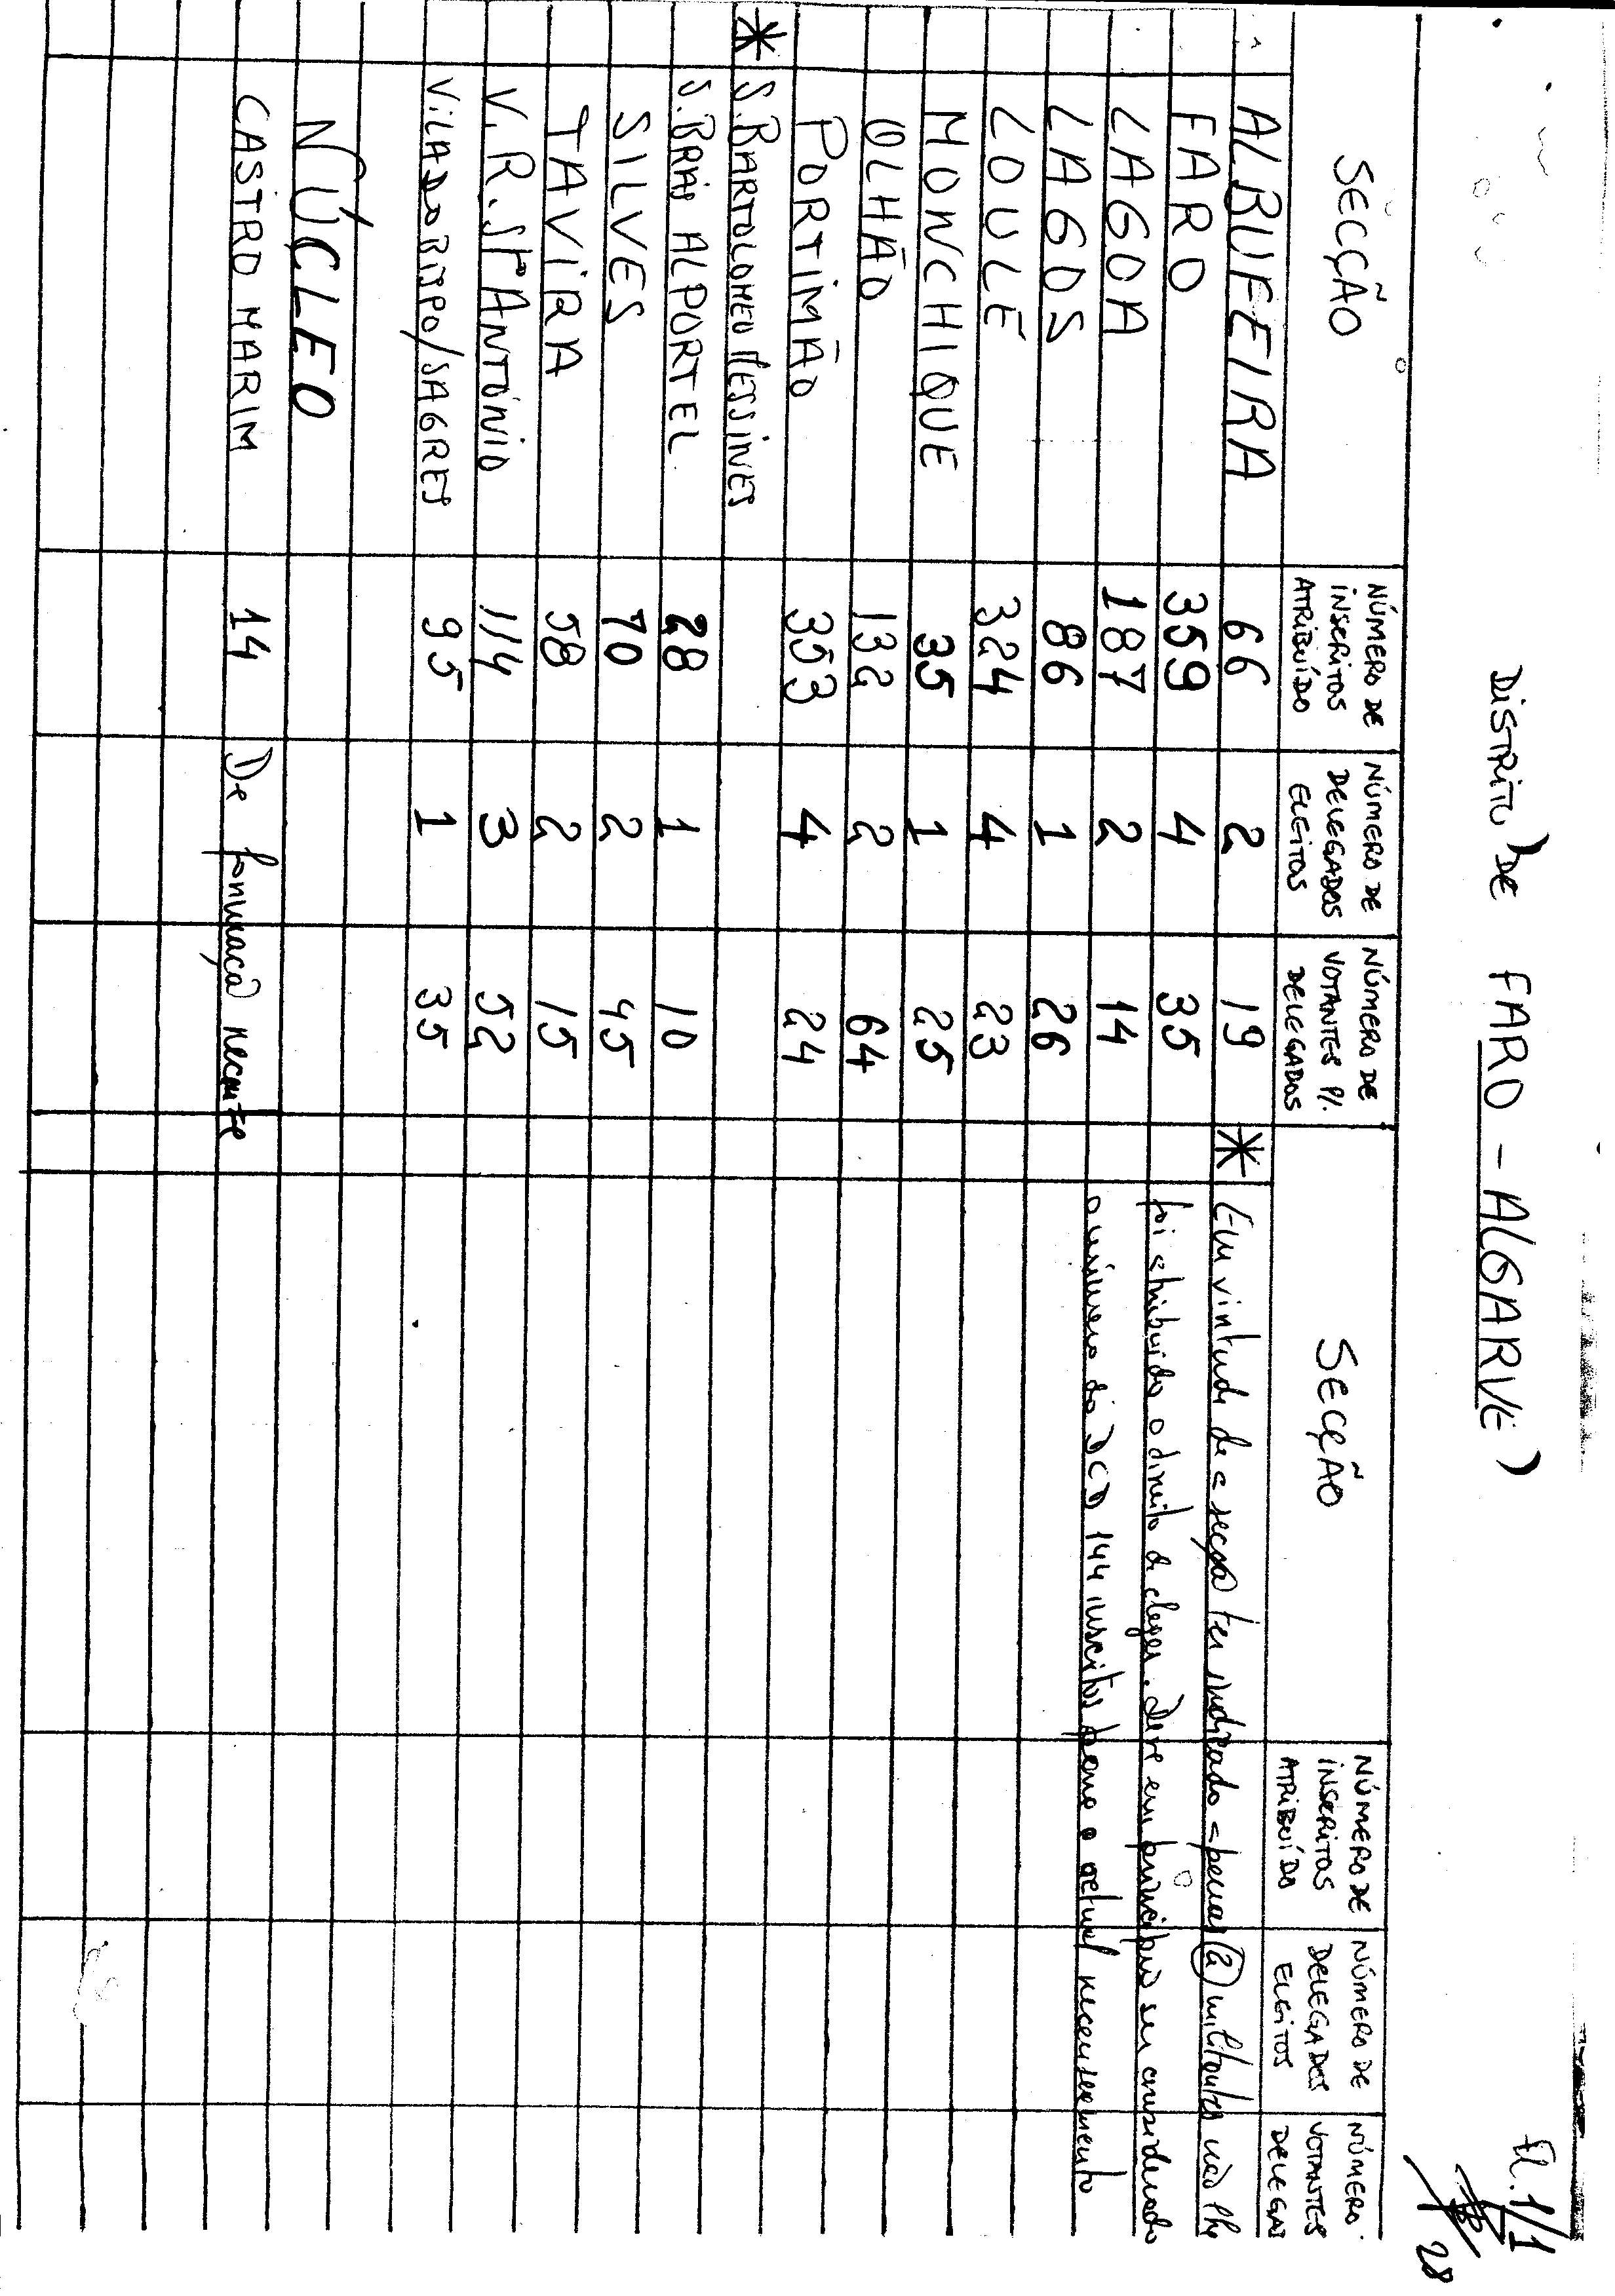 Fl. 1/1
28
DISTRITO DE FARO - ALGARVE)
SECÇÃO NÚMERO DE INSCRITOS ATRIBUÍDO NÚMERO DE DELEGADOS ELEITOS NÚMERO DE VOTANTES P/. DELEGADOS SECÇÃO NÚMERO DE INSCRITOS ATRIBUÍDO NÚMERO DE DELEGADOS ELEITOS NÚMERO VOTANTES DELEGA
ALBUFEIRA 66 2 19 * Em virtude de a secção ter indicado apenas (2) militantes não lhe
FARO 359 4 35 foi atribuido o direito de eleger. Deve em principio ser considerado
LAGOA 187 2 14 o número do DCD 144 inscritos para o actual recenseamento
LAGOS 86 1 26
LOULÉ 324 4 23
MONCHIQUE 35 1 25
OLHÃO 132 2 64
PORTIMÃO 353 4 24
* S. BARTOLOMEU MESSINES
S. BRÁS ALPORTEL 28 1 10
SILVES 70 2 45
TAVIRA 58 2 15
V. R. STº ANTÓNIO 114 3 52
VILA DO BISPO/SAGRES 95 1 35
NÚCLEO
CASTRO MARIM 14 De formação recente